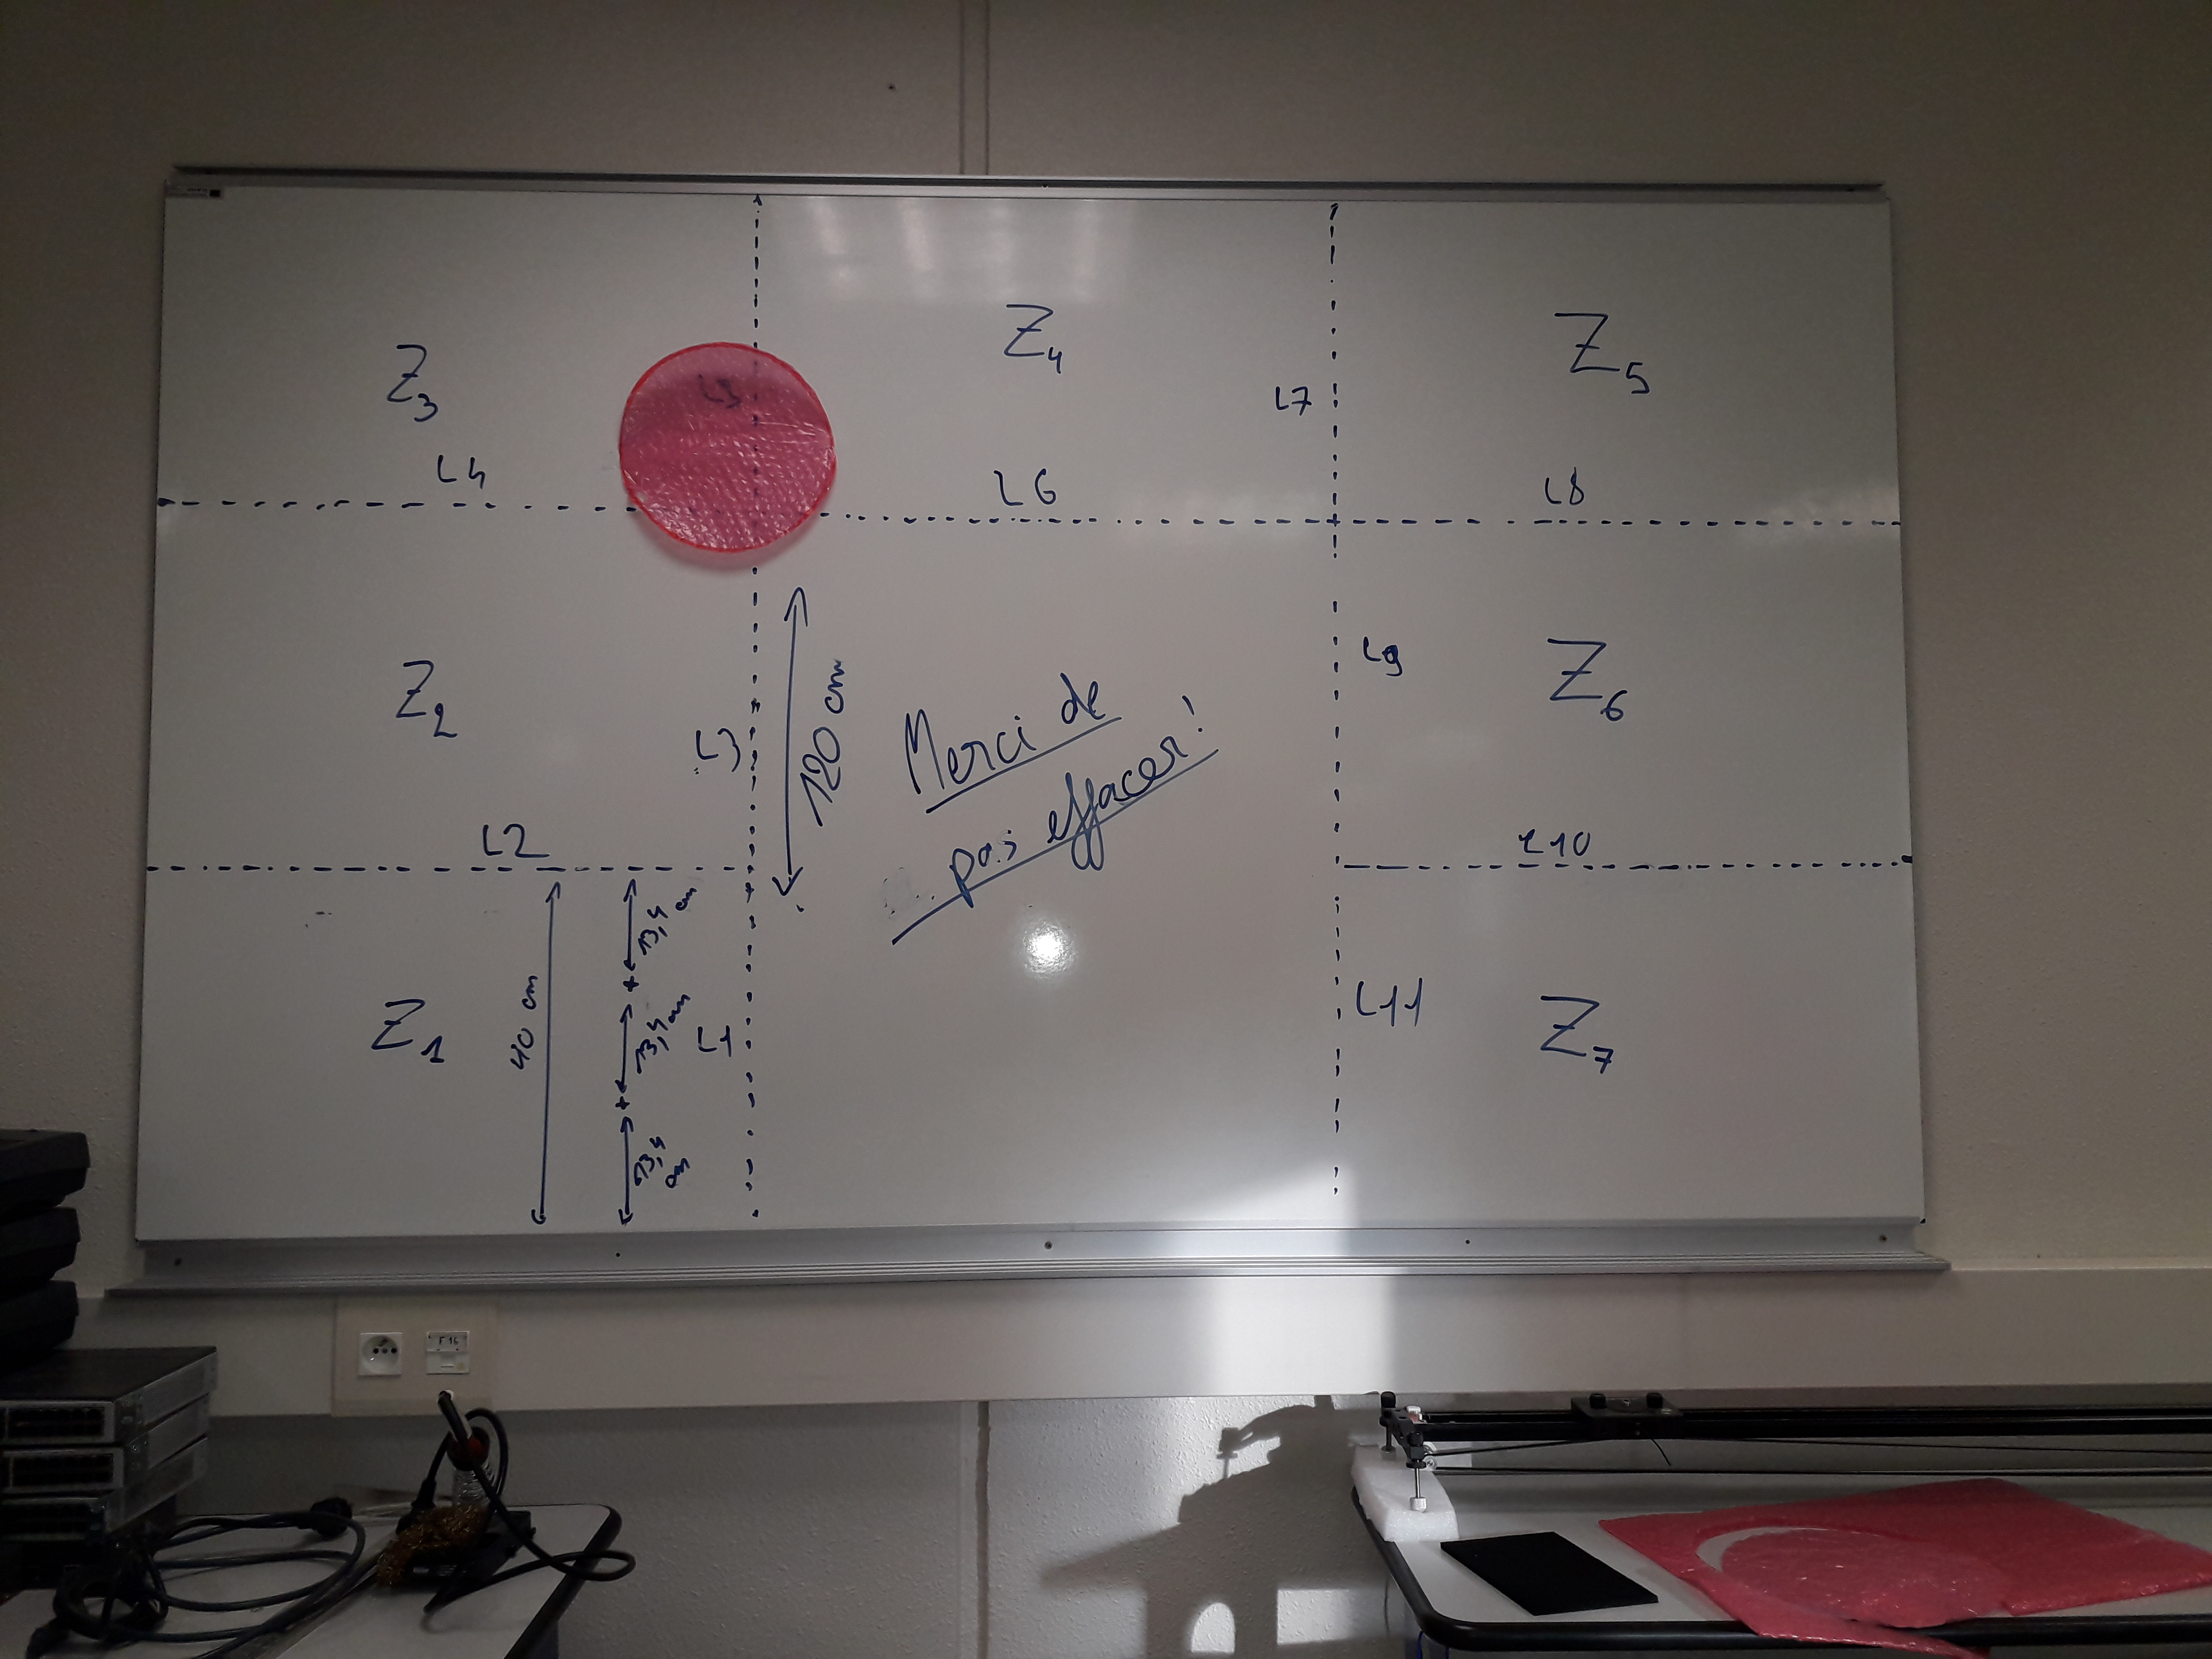 Z3
Z4
Z5
L5
L7
L4
L6
L8
Z2
L3
120 cm
Merci de
pas effacer!
L9
Z6
L2
L10
Z1
40 cm
13,4 cm
13,4 cm
13,4 cm
L1
L11
Z7
F 16